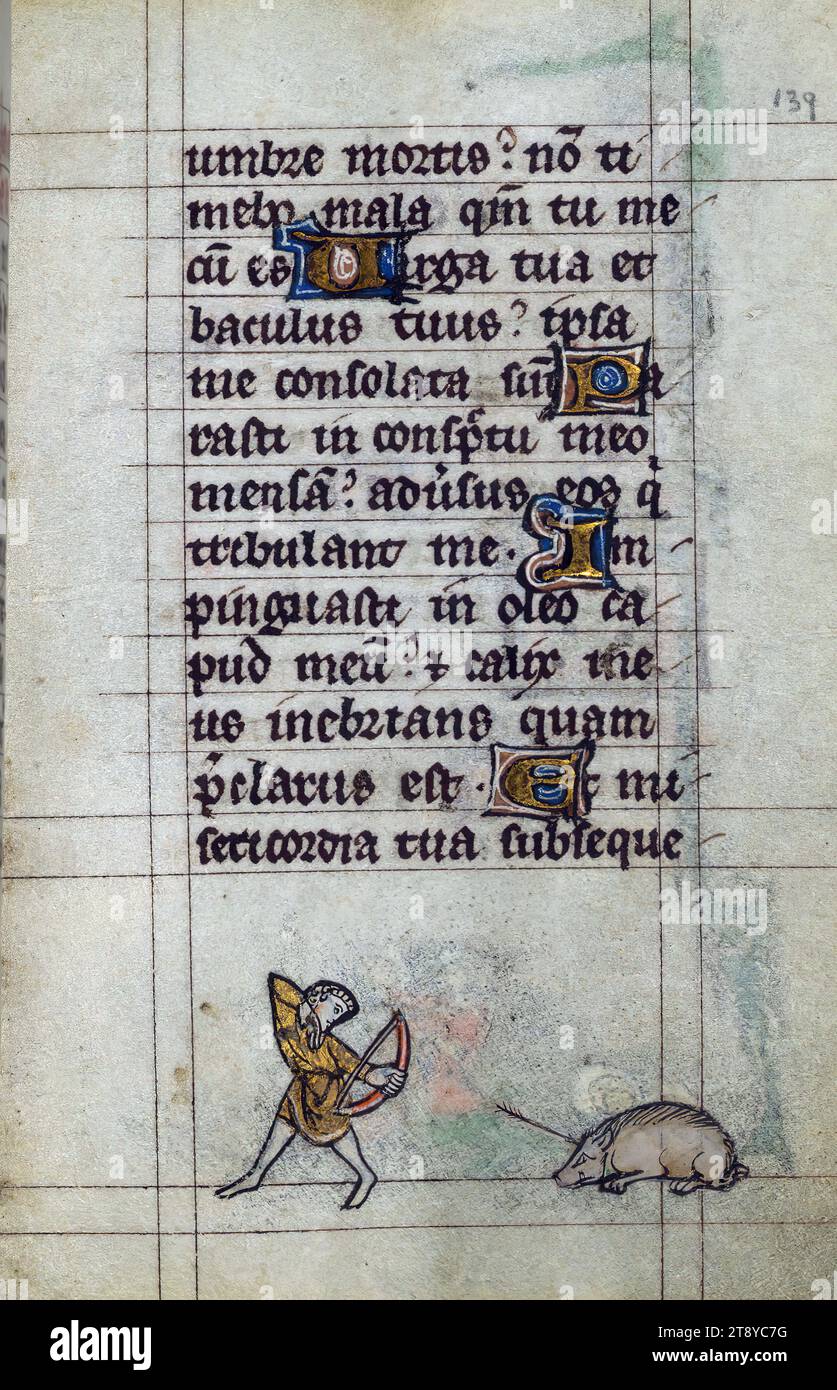 139
umbre mortis? nō ti
mebo mala qm̄ tu me
cū es Uirga tua et
baculus tuus? ipsa
me consolata sūt Pa
rasti in conspc̄tu meo
mensā? adūsus eos q̍
tribulant me. Im
pinguasti in oleo ca
pud meū? ⁊ calix me
us inebrians quam
p̄clarus est. Et mi
sericordia tua subseque
alamy
Image ID: 2T8YC7G
www.alamy.com